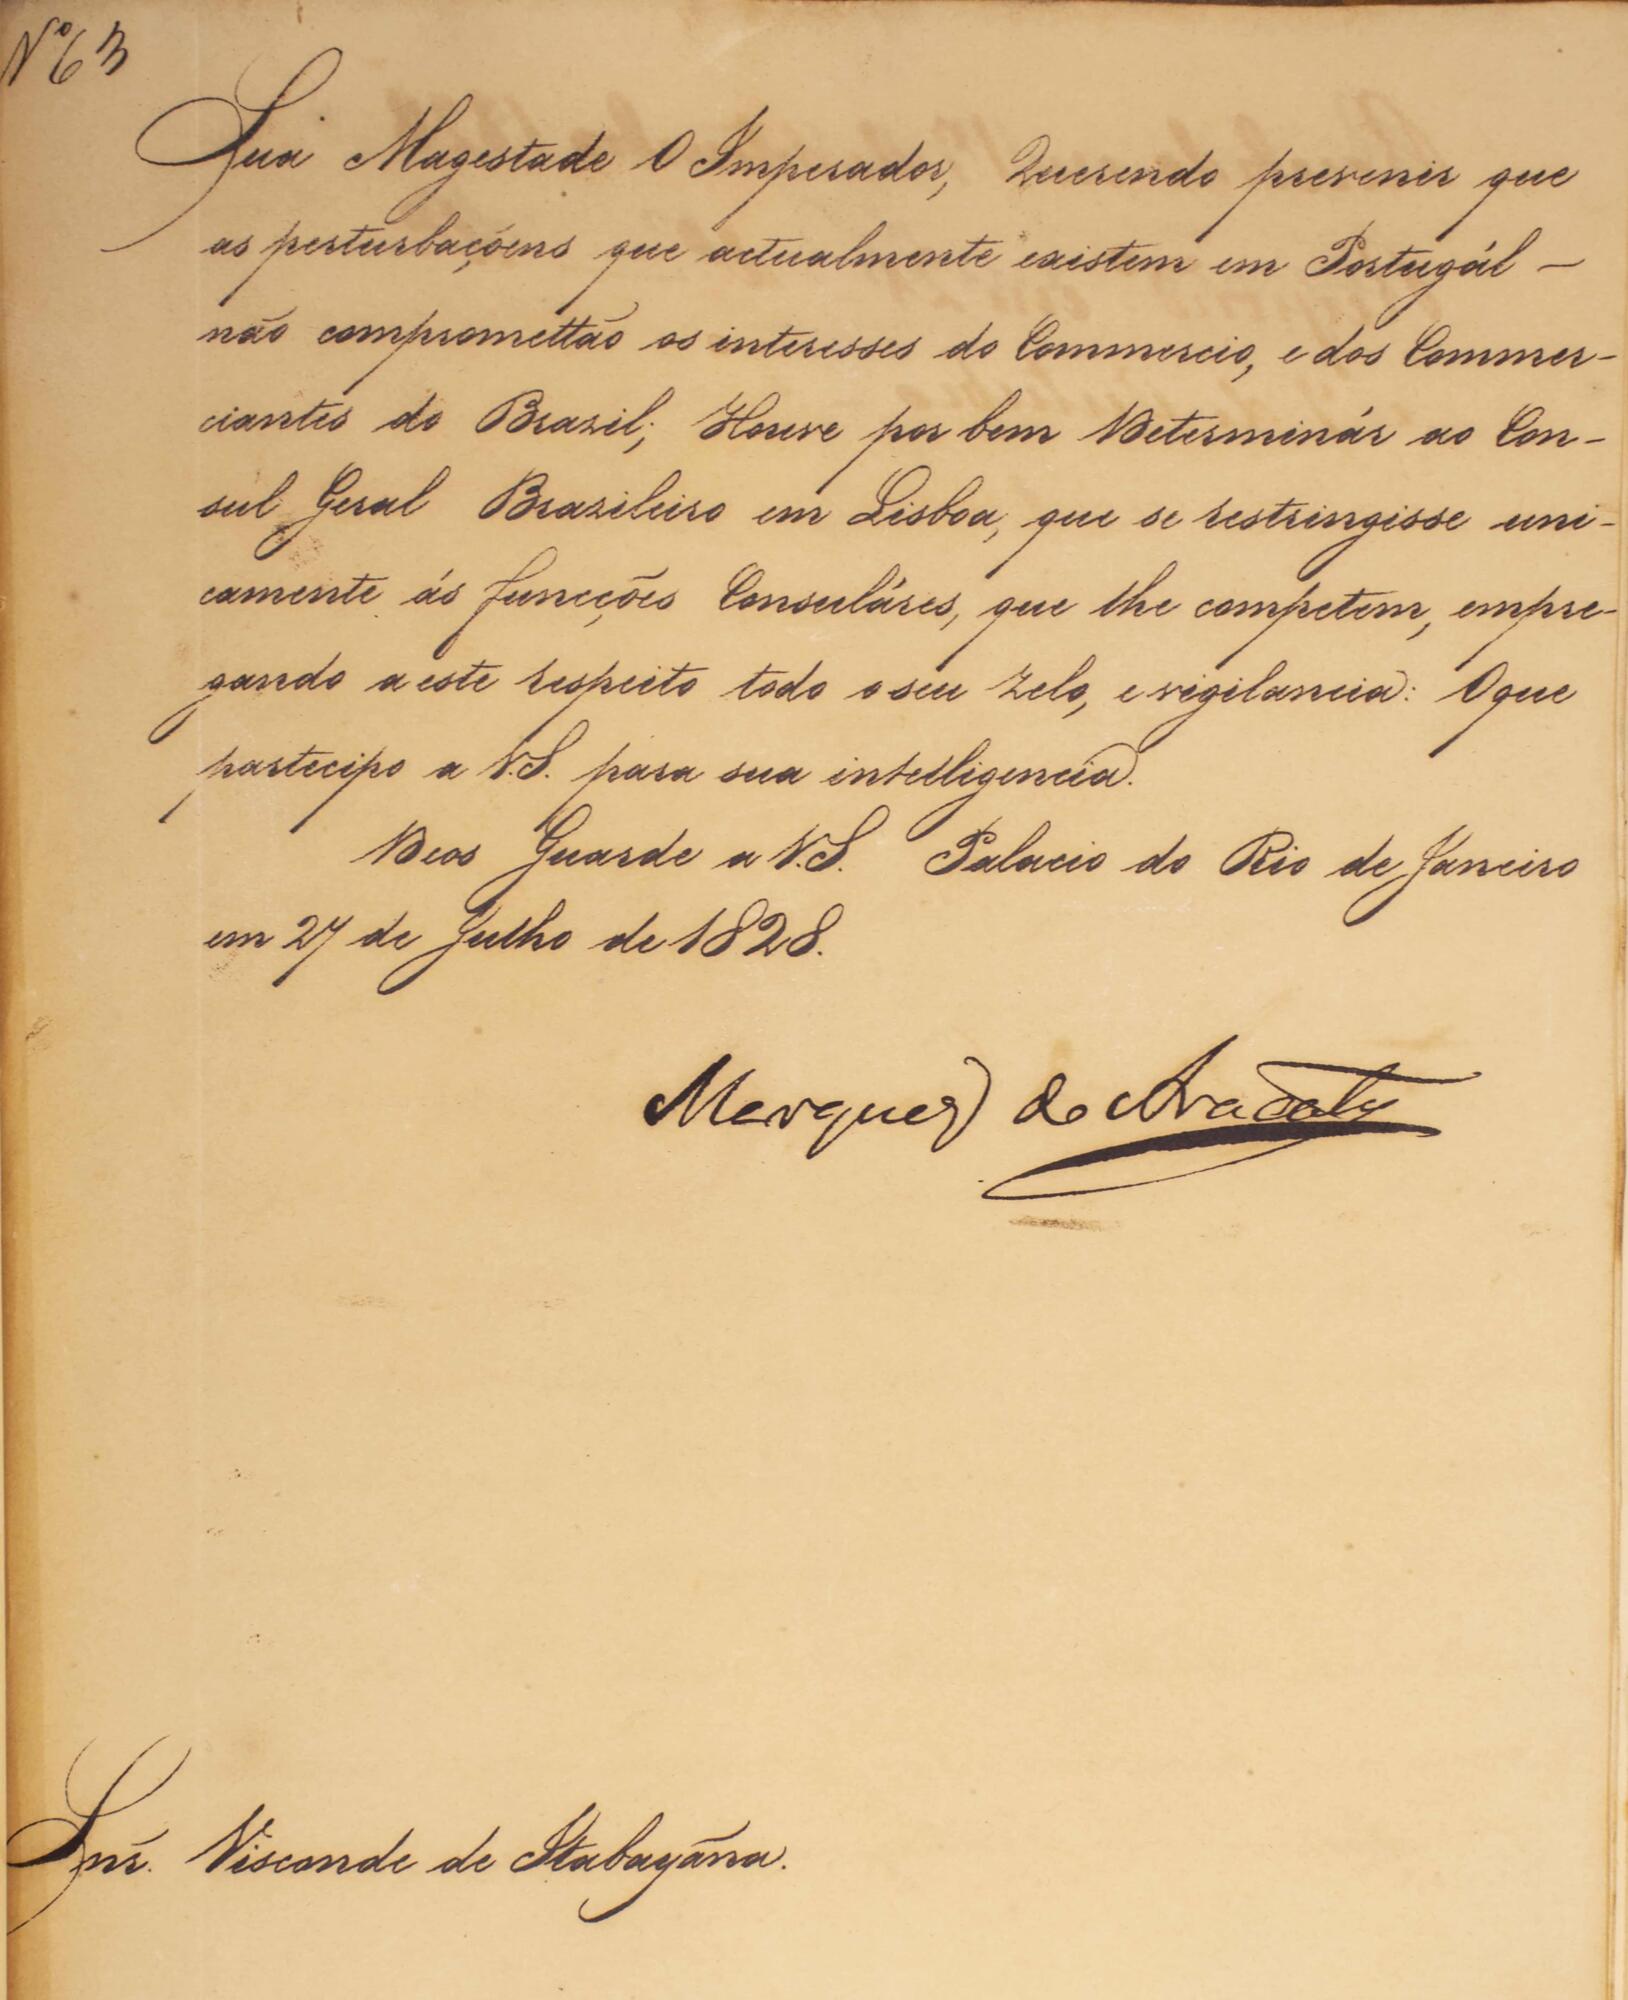 Nº 63
Sua Magestade O Imperador, Querendo prevenir que
as perturbaçóens que actualmente existem em Portugál –
não compromettão os interesses do Commercio, e dos Commer-
ciantes do Brazil; Houve por bem Determinár ao Con-
sul Geral Brazileiro em Lisboa, que se restringisse uni-
camente ás funcções Consuláres, que lhe competem, empre-
gando a este respeito todo o seu zelo, e vigilancia: O que
partecipo a V.S. para sua intelligencia.
Deos Guarde a V.S. Palacio do Rio de Janeiro
em 27 de Julho de 1828.
Marquez de Aracaty
Snr. Visconde de Itabayãna.